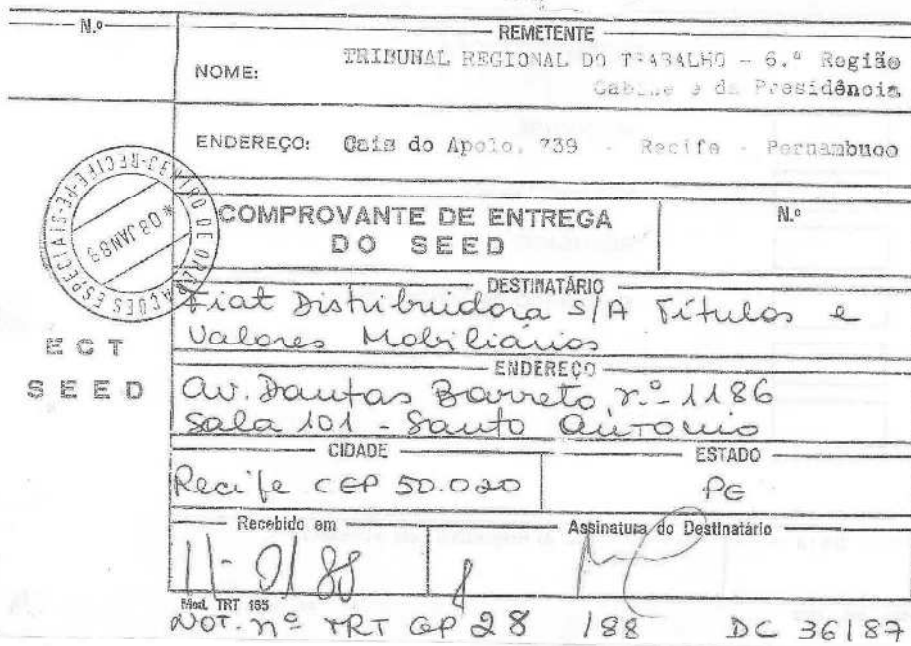 N.º
REMETENTE
NOME: TRIBUNAL REGIONAL DO TRABALHO - 6.ª Região
Gabinete da Presidência
ENDEREÇO: Cais do Apolo, 739 - Recife - Pernambuco
COMPROVANTE DE ENTREGA
DO SEED
N.º
DESTINATÁRIO
Fiat Distribuidora S/A Títulos e
Valores Mobiliários
ECT
SEED
ENDEREÇO
Av. Dantas Barreto, n.º 1186
Sala 101 - Santo Antonio
CIDADE
ESTADO
Recife CEP 50.020
PE
Recebido em
Assinatura do Destinatário
11-01 88
Mod. TRT 165
NOT. nº TRT GP 28 /88 DC 36/87